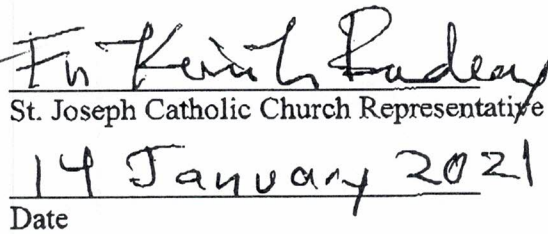 Fr Keith
St. Joseph Catholic Church Representative
14 January 2021
Date